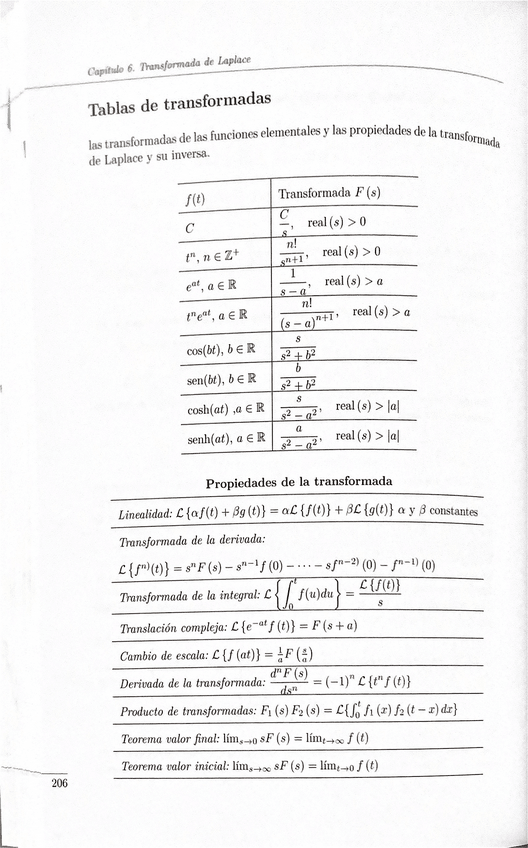 Capítulo 6. Transformada de Laplace
Tablas de transformadas
las transformadas de las funciones elementales y las propiedades de la transformada
de Laplace y su inversa.
f(t) Transformada F (s)
C C/s, real (s) > 0
tⁿ, n ∈ ℤ⁺ n!/sⁿ⁺¹, real (s) > 0
eᵃᵗ, a ∈ ℝ 1/(s − a), real (s) > a
tⁿeᵃᵗ, a ∈ ℝ n!/(s − a)ⁿ⁺¹, real (s) > a
cos(bt), b ∈ ℝ s/(s² + b²)
sen(bt), b ∈ ℝ b/(s² + b²)
cosh(at) ,a ∈ ℝ s/(s² − a²), real (s) > |a|
senh(at), a ∈ ℝ a/(s² − a²), real (s) > |a|
Propiedades de la transformada
Linealidad: ℒ {αf(t) + βg (t)} = αℒ {f(t)} + βℒ {g(t)} α y β constantes
Transformada de la derivada:
ℒ {fⁿ⁾(t)} = sⁿF (s) − sⁿ⁻¹f (0) − ⋯ − sfⁿ⁻²⁾ (0) − fⁿ⁻¹⁾ (0)
Transformada de la integral: ℒ {∫₀ᵗ f(u)du} = ℒ {f(t)}/s
Translación compleja: ℒ {e⁻ᵃᵗf (t)} = F (s + a)
Cambio de escala: ℒ {f (at)} = 1/a F (s/a)
Derivada de la transformada: dⁿF (s)/dsⁿ = (−1)ⁿ ℒ {tⁿf (t)}
Producto de transformadas: F₁ (s) F₂ (s) = ℒ{∫₀ᵗ f₁ (x) f₂ (t − x) dx}
Teorema valor final: lím_{s→0} sF (s) = lím_{t→∞} f (t)
Teorema valor inicial: lím_{s→∞} sF (s) = lím_{t→0} f (t)
206